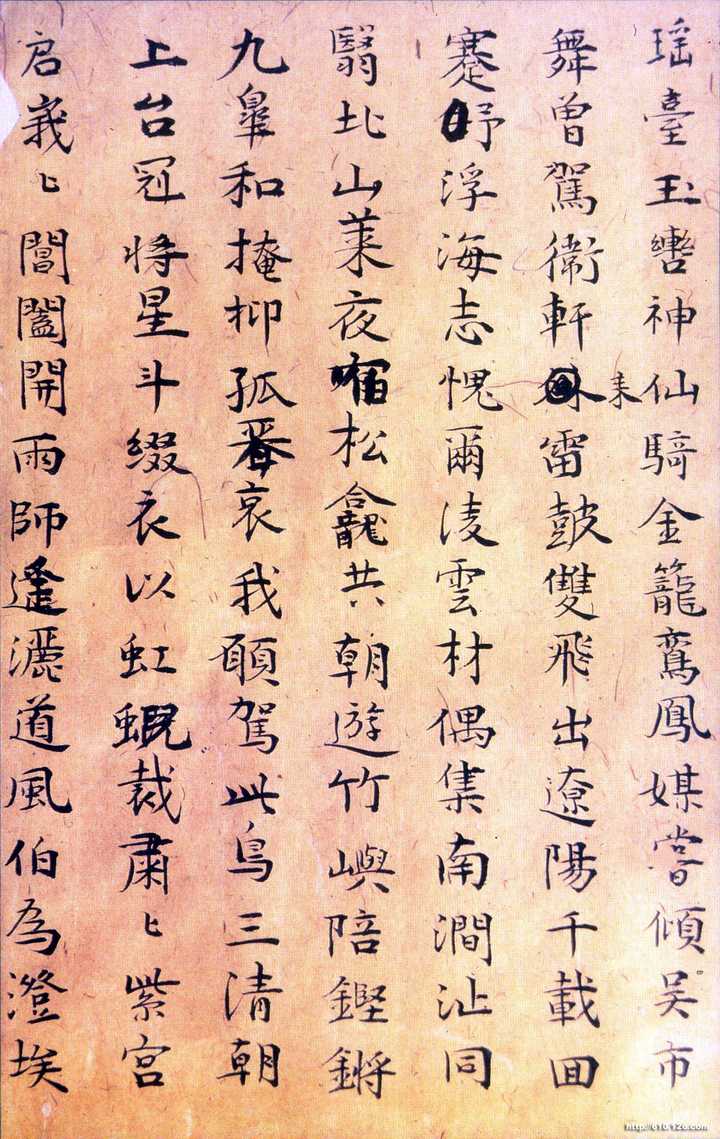 瑶臺玉轡神仙騎金籠鸞鳳媒嘗傾吴市
舞曾駕衛軒来雷鼓雙飛出遼陽千載囬
蹇予浮海志愧爾淩雲材偶集南澗沚同
翳北山萊夜宿松龕共朝遊竹嶼陪鏗鏘
九臯和掩抑孤哀我願駕此鳥三清朝
上台冠将星斗綴衣以虹蜺裁肅〻紫宫
启峩〻閶闔開雨師逢灑道風伯為澄埃